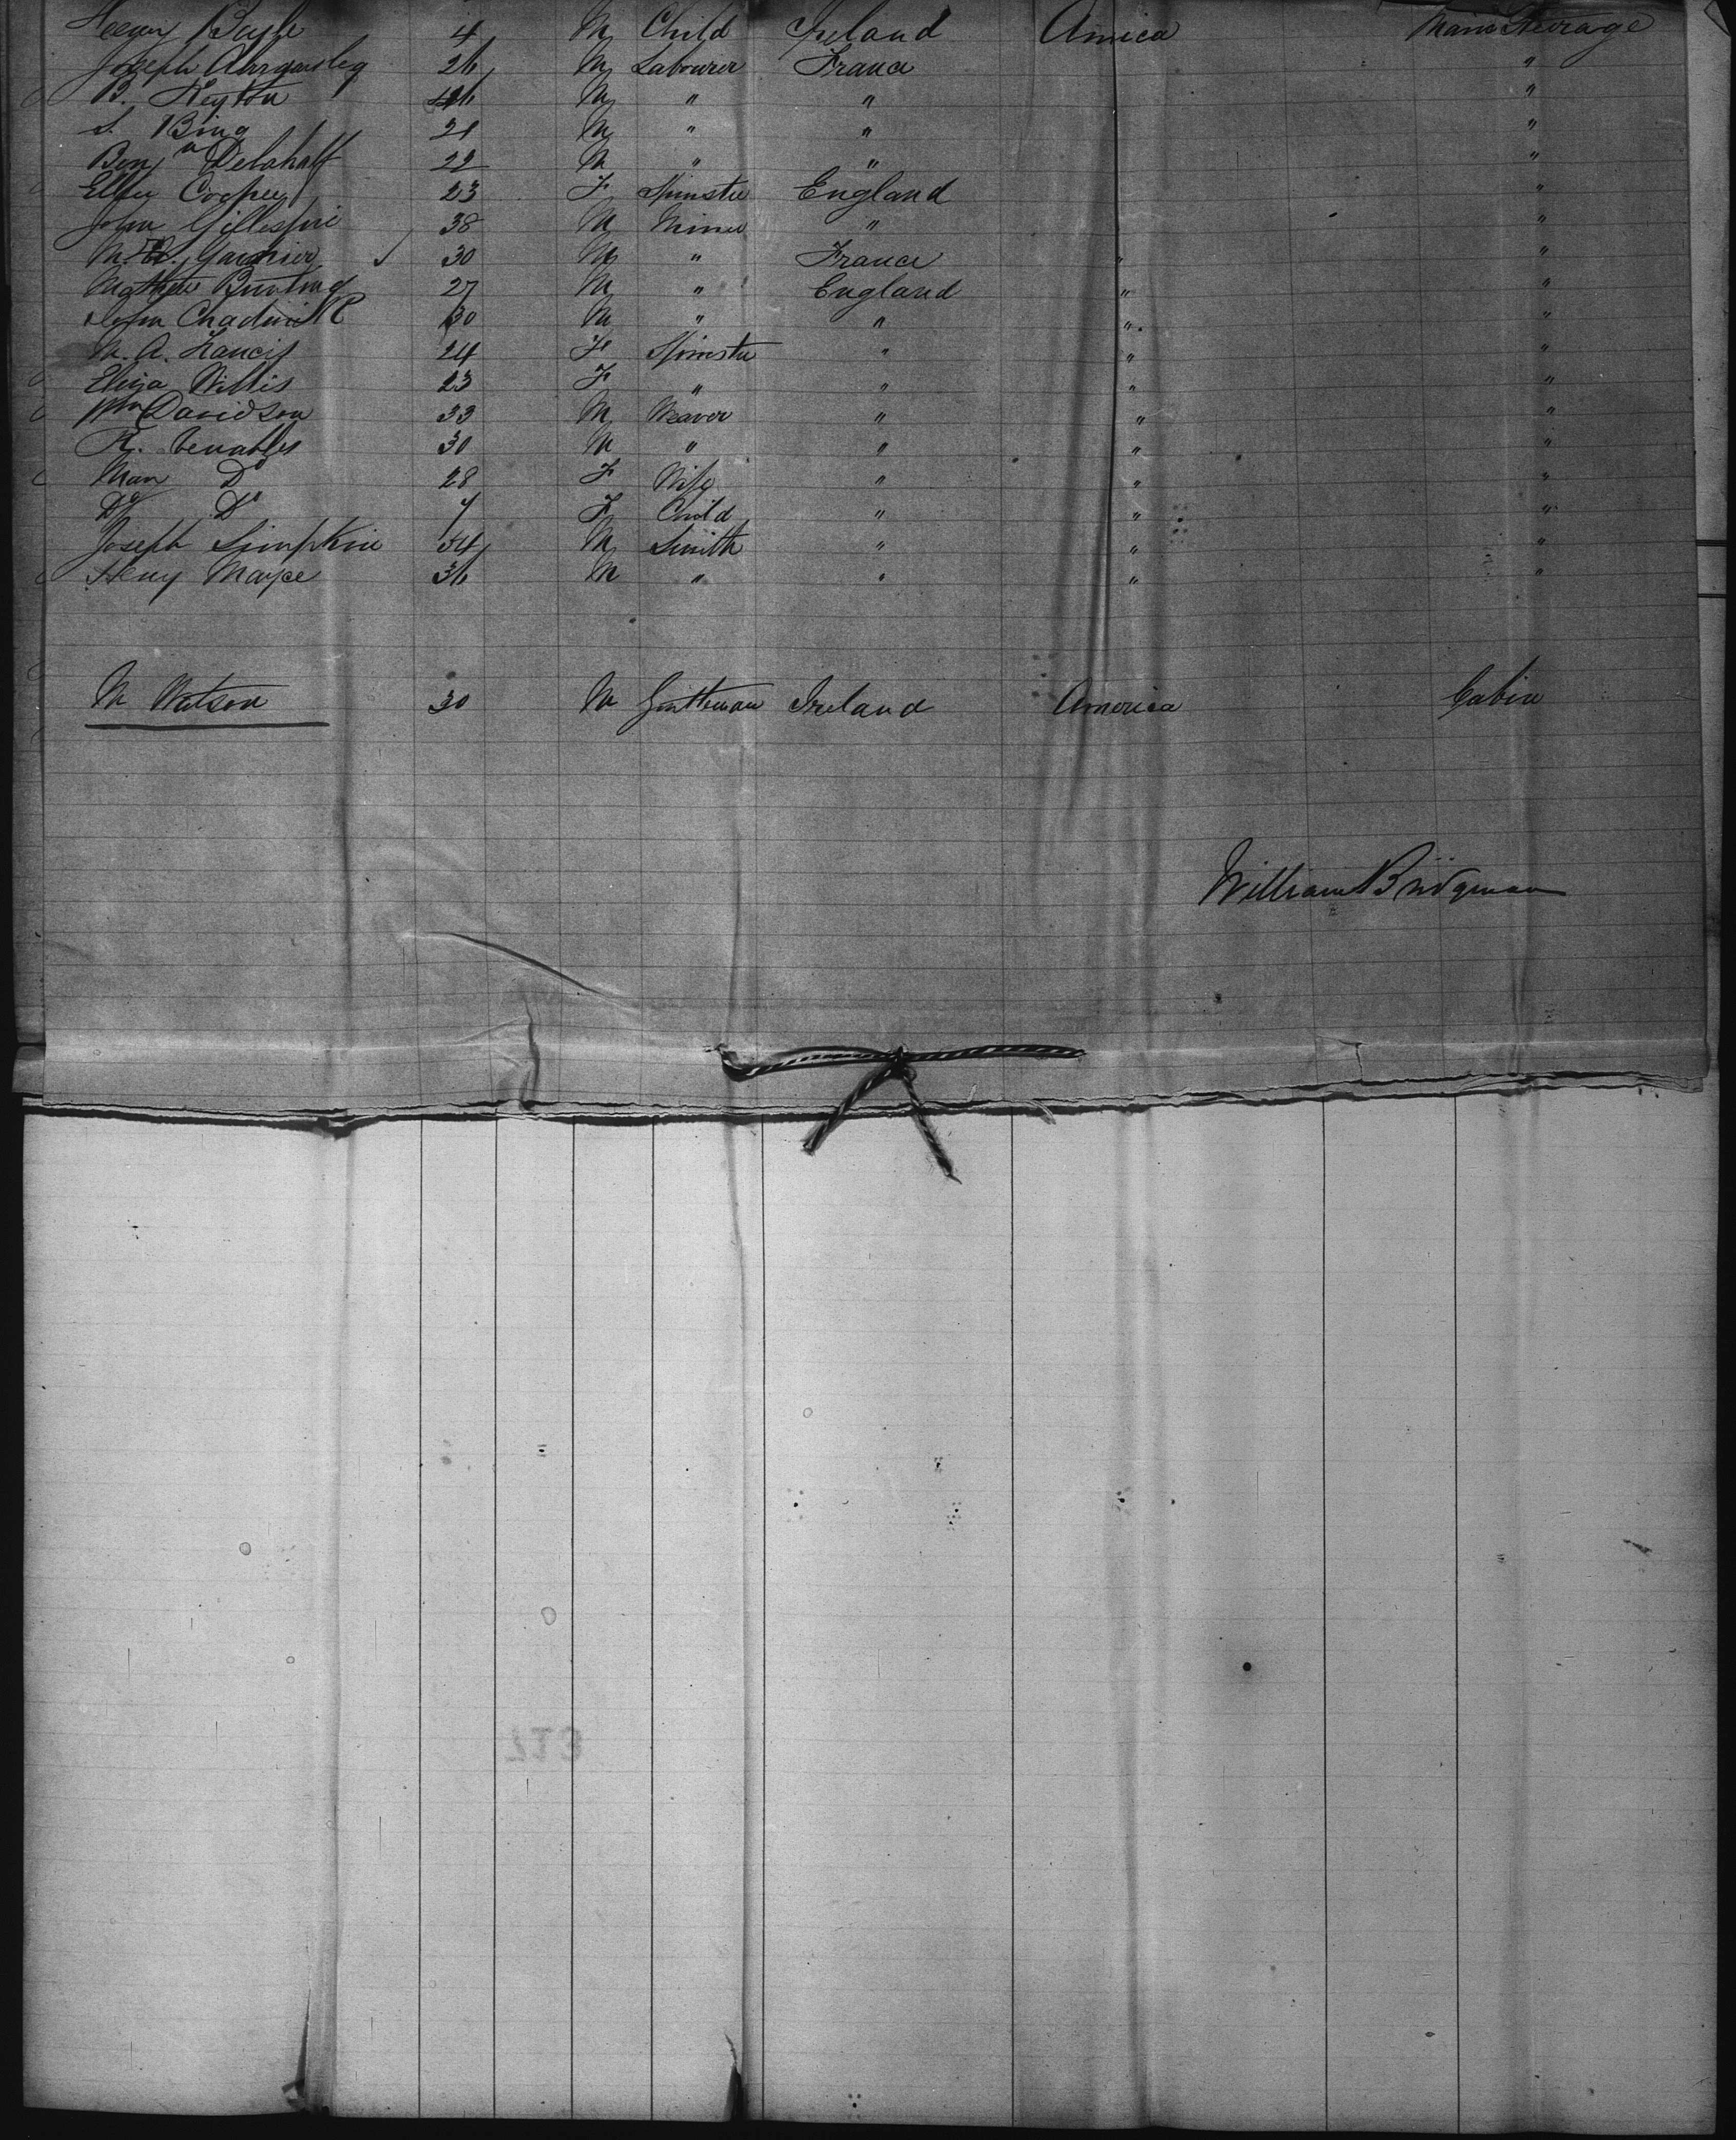 Henry Bayle 4 M Child Ireland America Main Steerage
Joseph 26 M Labourer France "
B. Heyton 46 M " " "
S. Bing 21 M " " "
Benjn Delahalt 22 M " " "
Ellen Cooper 23 F Spinster England "
John Gillespie 38 M Miner " "
M. Garnier 30 M " France " "
Mathew Bunting 27 M " England " "
John Chadwick 30 M " " " "
M. A. Francis 24 F Spinster " " "
Eliza Willis 23 F " " " "
Wm Davidson 33 M Weaver " " "
R. Venables 30 M " " " "
Mary Do 28 F Wife " " "
Do Do 7 F Child " " "
Joseph Simpkin 34 M Smith " " "
Henry Mayce 36 M " " " "
M Watson 30 M Gentleman Ireland America Cabin
William Bridgman